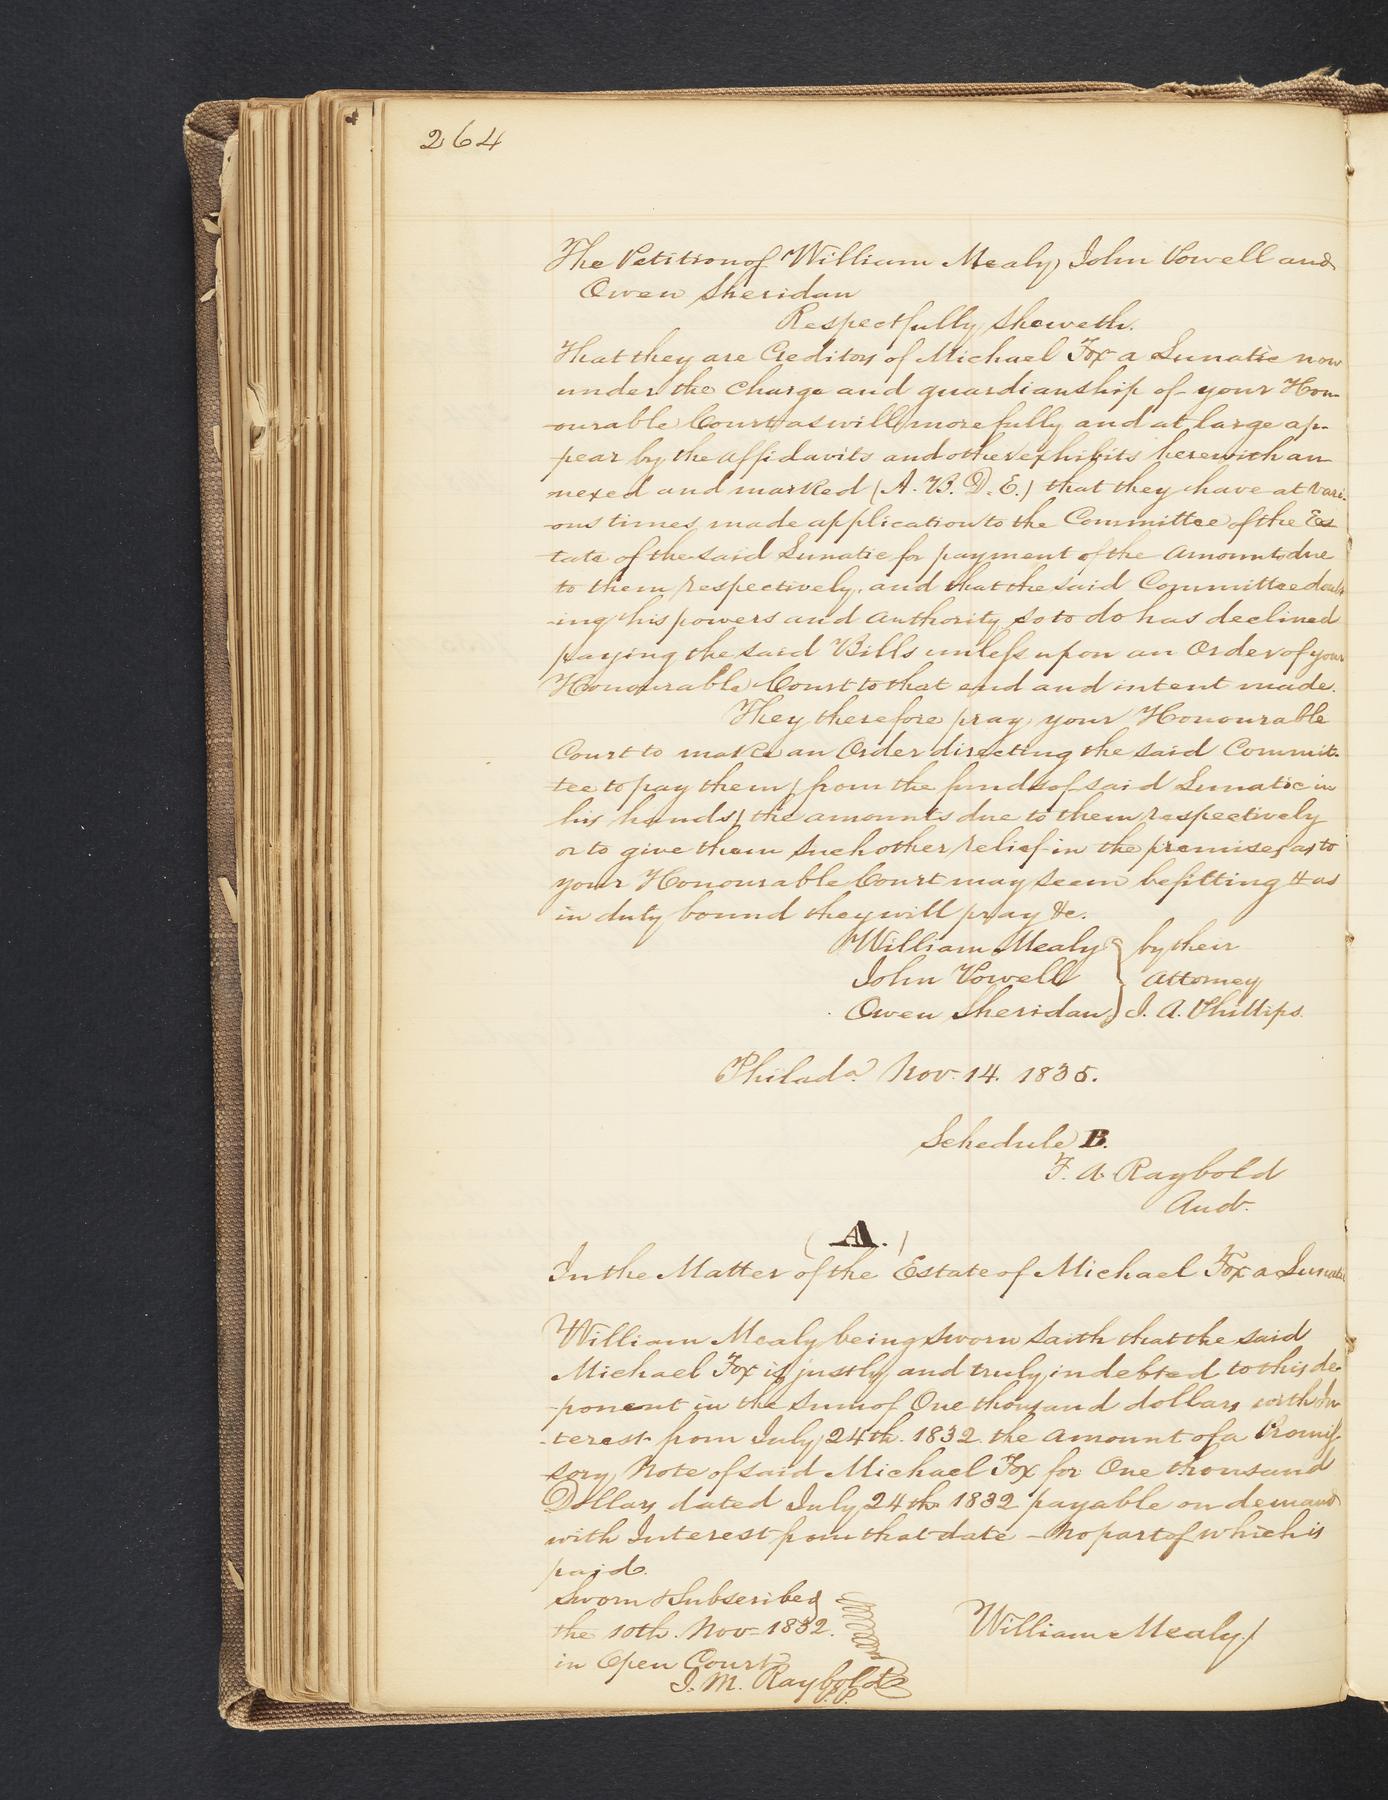 264
The Petition of William Mealy, John Vowell and
Owen Sheridan
Respectfully Sheweth.
That they are Creditors of Michael Fox a Lunatic now
under the charge and guardianship of your Hon-
ourable Court as will more fully and at large ap-
pear by the affidavits and other exhibits herewith an
nexed and marked (A. B. D. E.) that they have at vari-
ous times made application to the Committee of the Es
tate of the said Lunatic for payment of the amounts due
to them respectively, and that the said Committee doubt
ing his powers and authority so to do has declined
paying the said Bills unless upon an Order of your
Honourable Court to that end and intent made.
They therefore pray your Honourable
Court to make an Order directing the said Commit-
tee to pay them (from the funds of said Lunatic in
his hands) the amounts due to them respectively
or to give them such other relief in the premises as to
your Honourable Court may seem befitting & as
in duty bound they will pray &c.
William Mealy } by their
John Vowell } attorney
Owen Sheridan } J. A. Phillips.
Philada. Nov. 14. 1835.
Schedule B.
F. A. Raybold
Aud.
(A.)
In the Matter of the Estate of Michael Fox a Lunatic
William Mealy being sworn saith that the said
Michael Fox is justly and truly indebted to this de-
ponent in the sum of One thousand dollars with In-
terest from July 24th. 1832. the amount of a Promis-
sory Note of said Michael Fox for One thousand
Dollars dated July 24th 1832 payable on demand
with Interest from that date - No part of which is
paid.
Sworn & Subscribed
the 10th. Nov. 1832. William Mealy/
in Open Court
J. M. Raybold